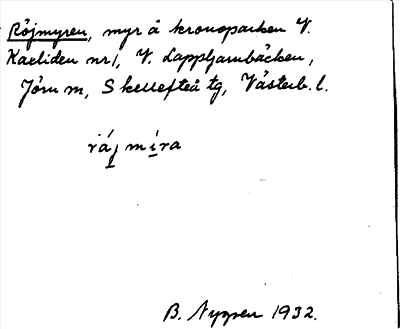 Röjmyren, myr å kronoparken V.
Karliden nr 1, V. Lappljarnbäcken,
Jörn sn, Skellefteå tg, Västerb. l.
råjmíra
B. Nygren 1932.